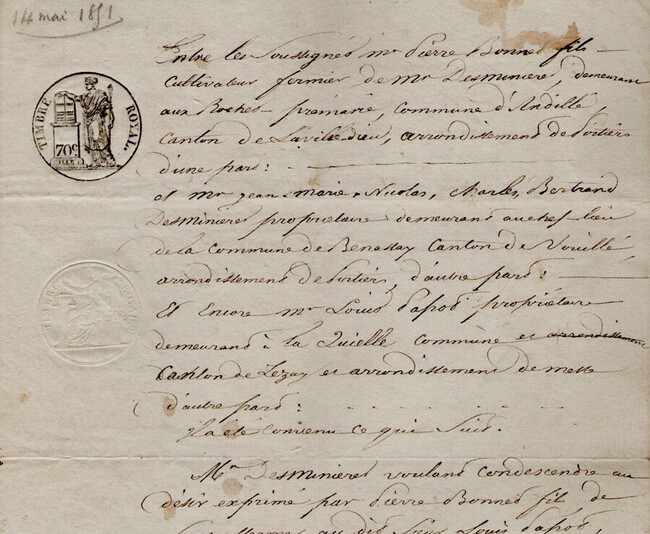 14 mai 1851
TIMBRE ROYAL.
70c
Entre les Soussignés mr Pierre Bonned fils
Cultivateur fermier de Mr Desminiere, demeurant
aux Roches-prémarie, Commune d'Andillé,
Canton de Lavilledieu, arrondissement de Poitiers
d'une pard:
et mr jean-Marie-Nicolas, Charles, Bertrand
Desminieres propriétaire demeurant au chef-lieu
de la Commune de Benassay Canton de Vouillé,
arrondissement de Poitiers, d'autre pard:
Et Encore Mr Louis papod propriétaire
demeurand à la Quielle Commune et arrondissement
Canton de Lezay et arrondissement de melle
d'autre pard:
il a été Convenu Ce qui Suid.
Mr Desminieres voulant Condescendre au
désir exprimé par Pierre Bonned fils de
au dit Sieur Louis papod,